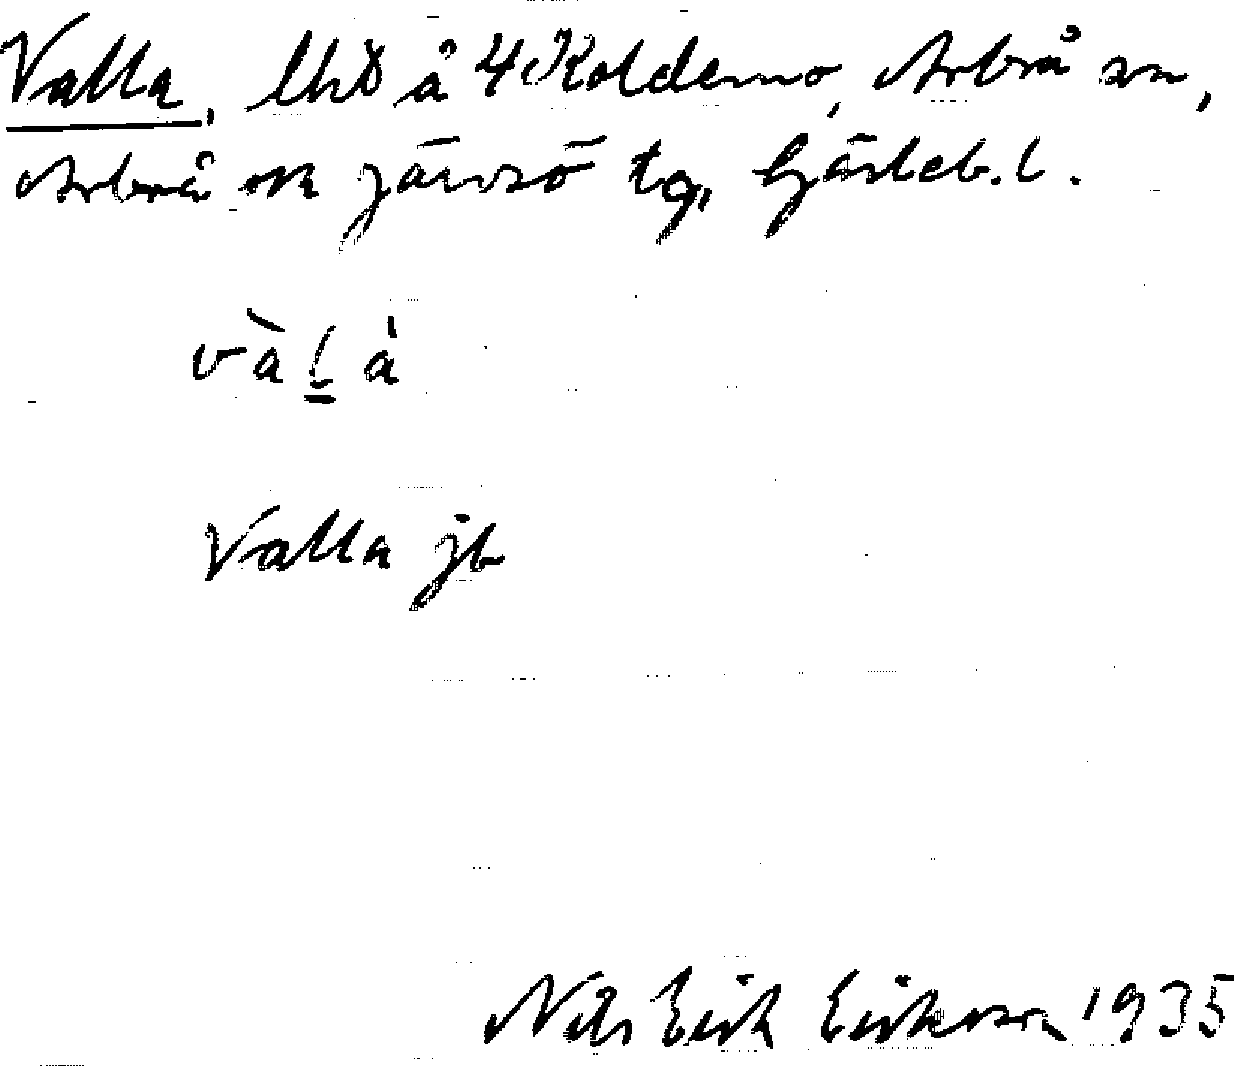 Valla, lhd å 4 Koldemo, Arbrå sn,
Arbrå o Järvsö tg, Gävleb. l.
vàl̲à
Valla jb
Nils Erik Eriksson 1935